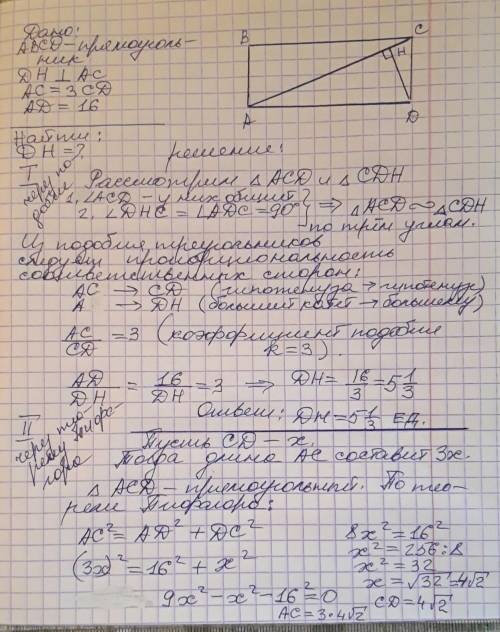 Дано:
ABCD - прямоуголь-
ник
DH ⊥ AC
AC = 3CD
AD = 16
B C H A D
Найти:
DH = ?
решение:
I
через по-
добие
Рассмотрим △ ACD и △ CDH
1. ∠ACD - у них общий
2. ∠DHC = ∠ADC = 90° } ⇒ △ACD ∼ △CDH
по трём углам.
Из подобия треугольников
следует пропорциональность
соответственных сторон:
AC → CD (гипотенуза → гипотенуз)
A → DH (больший катет → большему)
AC/CD = 3 (коэффициент подобия
k = 3).
AD/DH = 16/DH = 3 ⇒ DH = 16/3 = 5 1/3
Ответ: DH = 5 1/3 ед.
II
через тео-
рему Пифа-
гора
Пусть CD - x.
Тогда длина AC составит 3x.
△ ACD - прямоугольный. По тео-
реме Пифагора:
AC² = AD² + DC²
(3x)² = 16² + x²
9x² - x² - 16² = 0
8x² = 16²
x² = 256 : 8
x² = 32
x = √32 = 4√2
CD = 4√2
AC = 3 · 4√2